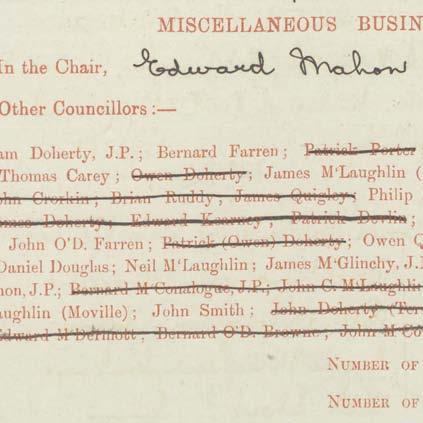 MISCELLANEOUS BUSIN
In the Chair, Edward Mahon
Other Councillors :—
am Doherty, J.P.; Bernard Farren; Patrick Porter
Thomas Carey; Owen Doherty; James M'Laughlin (
ohn Crorkin; Brian Ruddy; James Quigley; Philip
ames Doherty; Edward Kearney; Patrick Devlin;
John O'D. Farren; Patrick (Owen) Doherty; Owen Q
Daniel Douglas; Neil M'Laughlin; James M'Glinchy, J.
hon, J.P.; Bernard M'Conalogue, J.P.; John C. M'Laughlin
aughlin (Moville); John Smith; John Doherty (Ter
Edward M'Dermott; Bernard O'D. Browne; John M'Co
NUMBER OF
NUMBER OF